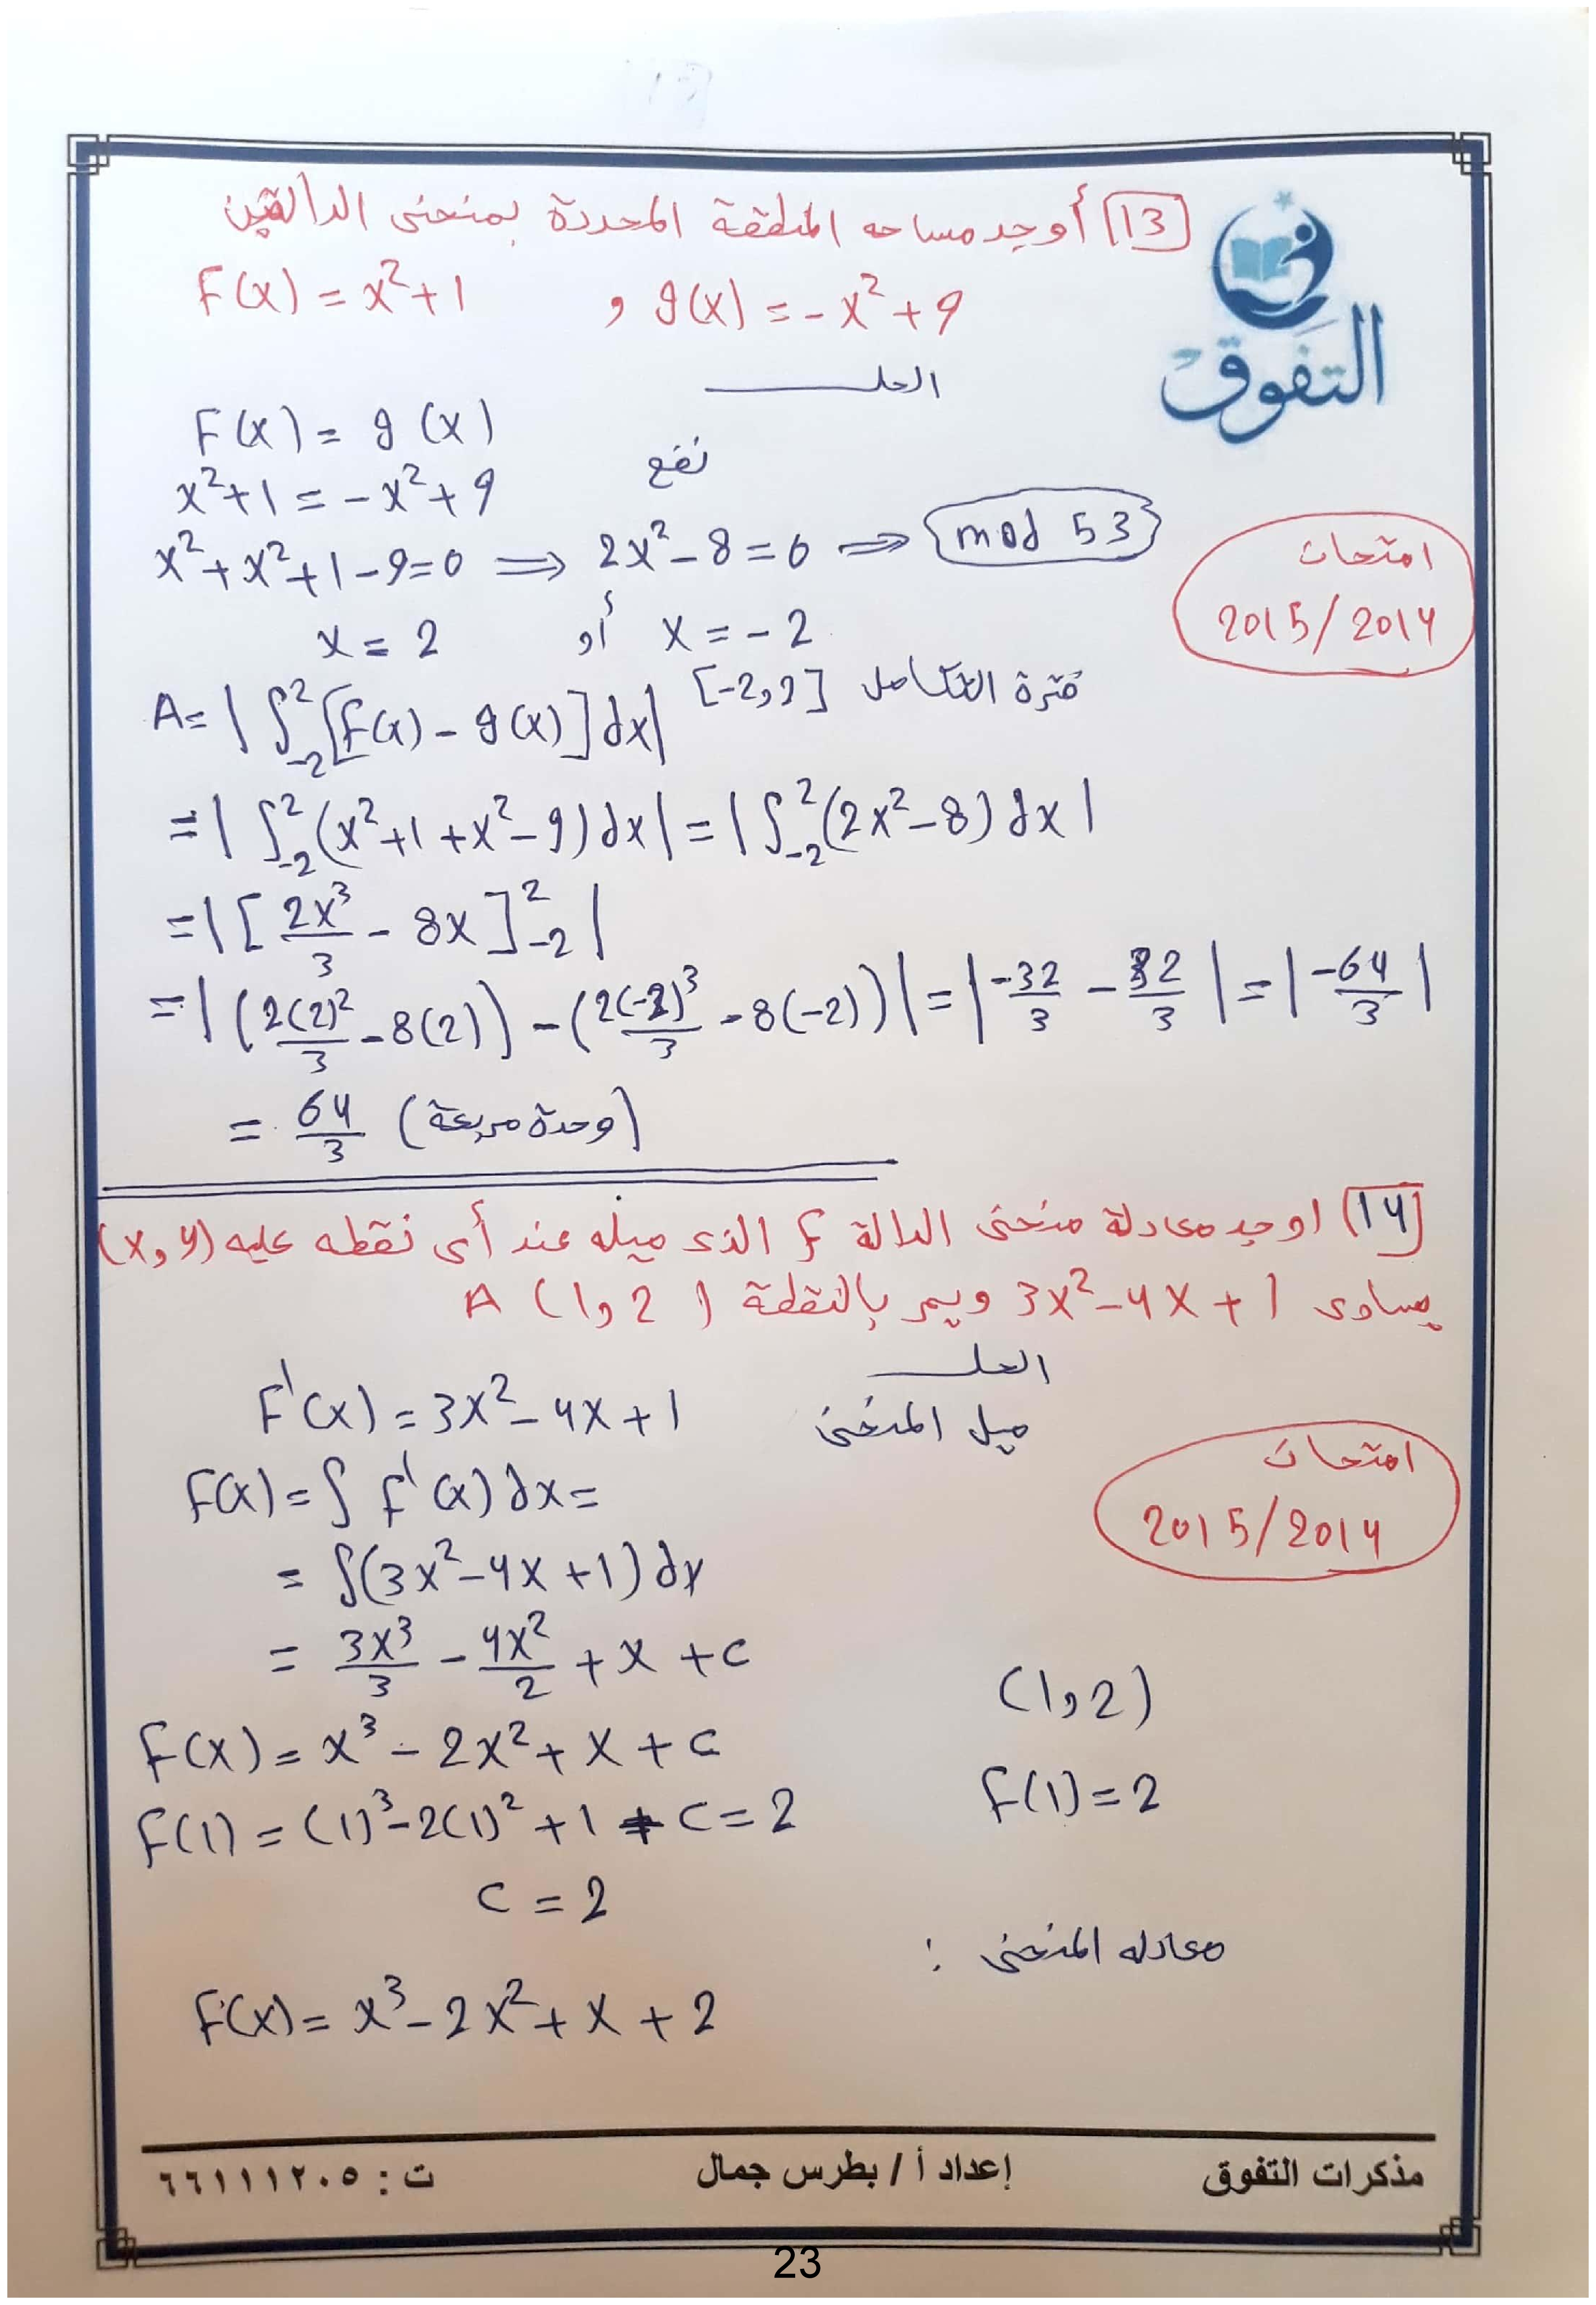 [13] أوجد مساحه المنطقة المحددة بمنحنى الدالتين
F(x) = x²+1 , g(x) = -x²+9
التفوق
الحل
F(x) = g(x)
نضع
x²+1 = -x²+9
x²+x²+1-9=0 ⇒ 2x²-8=0 ⇒ mod 53
امتحان
2015/2014
x = 2 أو x = -2
A = |∫₋₂² [f(x) - g(x)] dx| [-2,2] فترة التكامل
= |∫₋₂² (x²+1+x²-9) dx| = |∫₋₂² (2x²-8) dx|
= |[2x³/3 - 8x]₋₂²|
= |(2(2)²/3 - 8(2)) - (2(-2)³/3 - 8(-2))| = |-32/3 - 32/3| = |-64/3|
= 64/3 (وحدة مربعة)
[14] اوجد معادلة منحنى الدالة f الذى ميله عند أى نقطه عليه (x,y)
يساوى 3x²-4x+1 ويمر بالنقطة A (1,2)
الحل
F'(x) = 3x²-4x+1 ميل المنحنى
امتحان
2015/2014
F(x) = ∫ f'(x) dx =
= ∫(3x²-4x+1) dx
= 3x³/3 - 4x²/2 + x + c
(1,2)
F(x) = x³ - 2x² + x + c
f(1) = 2
F(1) = (1)³-2(1)²+1+c = 2
c = 2
معادله المنحنى :
F(x) = x³-2x²+x+2
مذكرات التفوق إعداد أ / بطرس جمال ت : ٦٦١١١٢٠٥
23